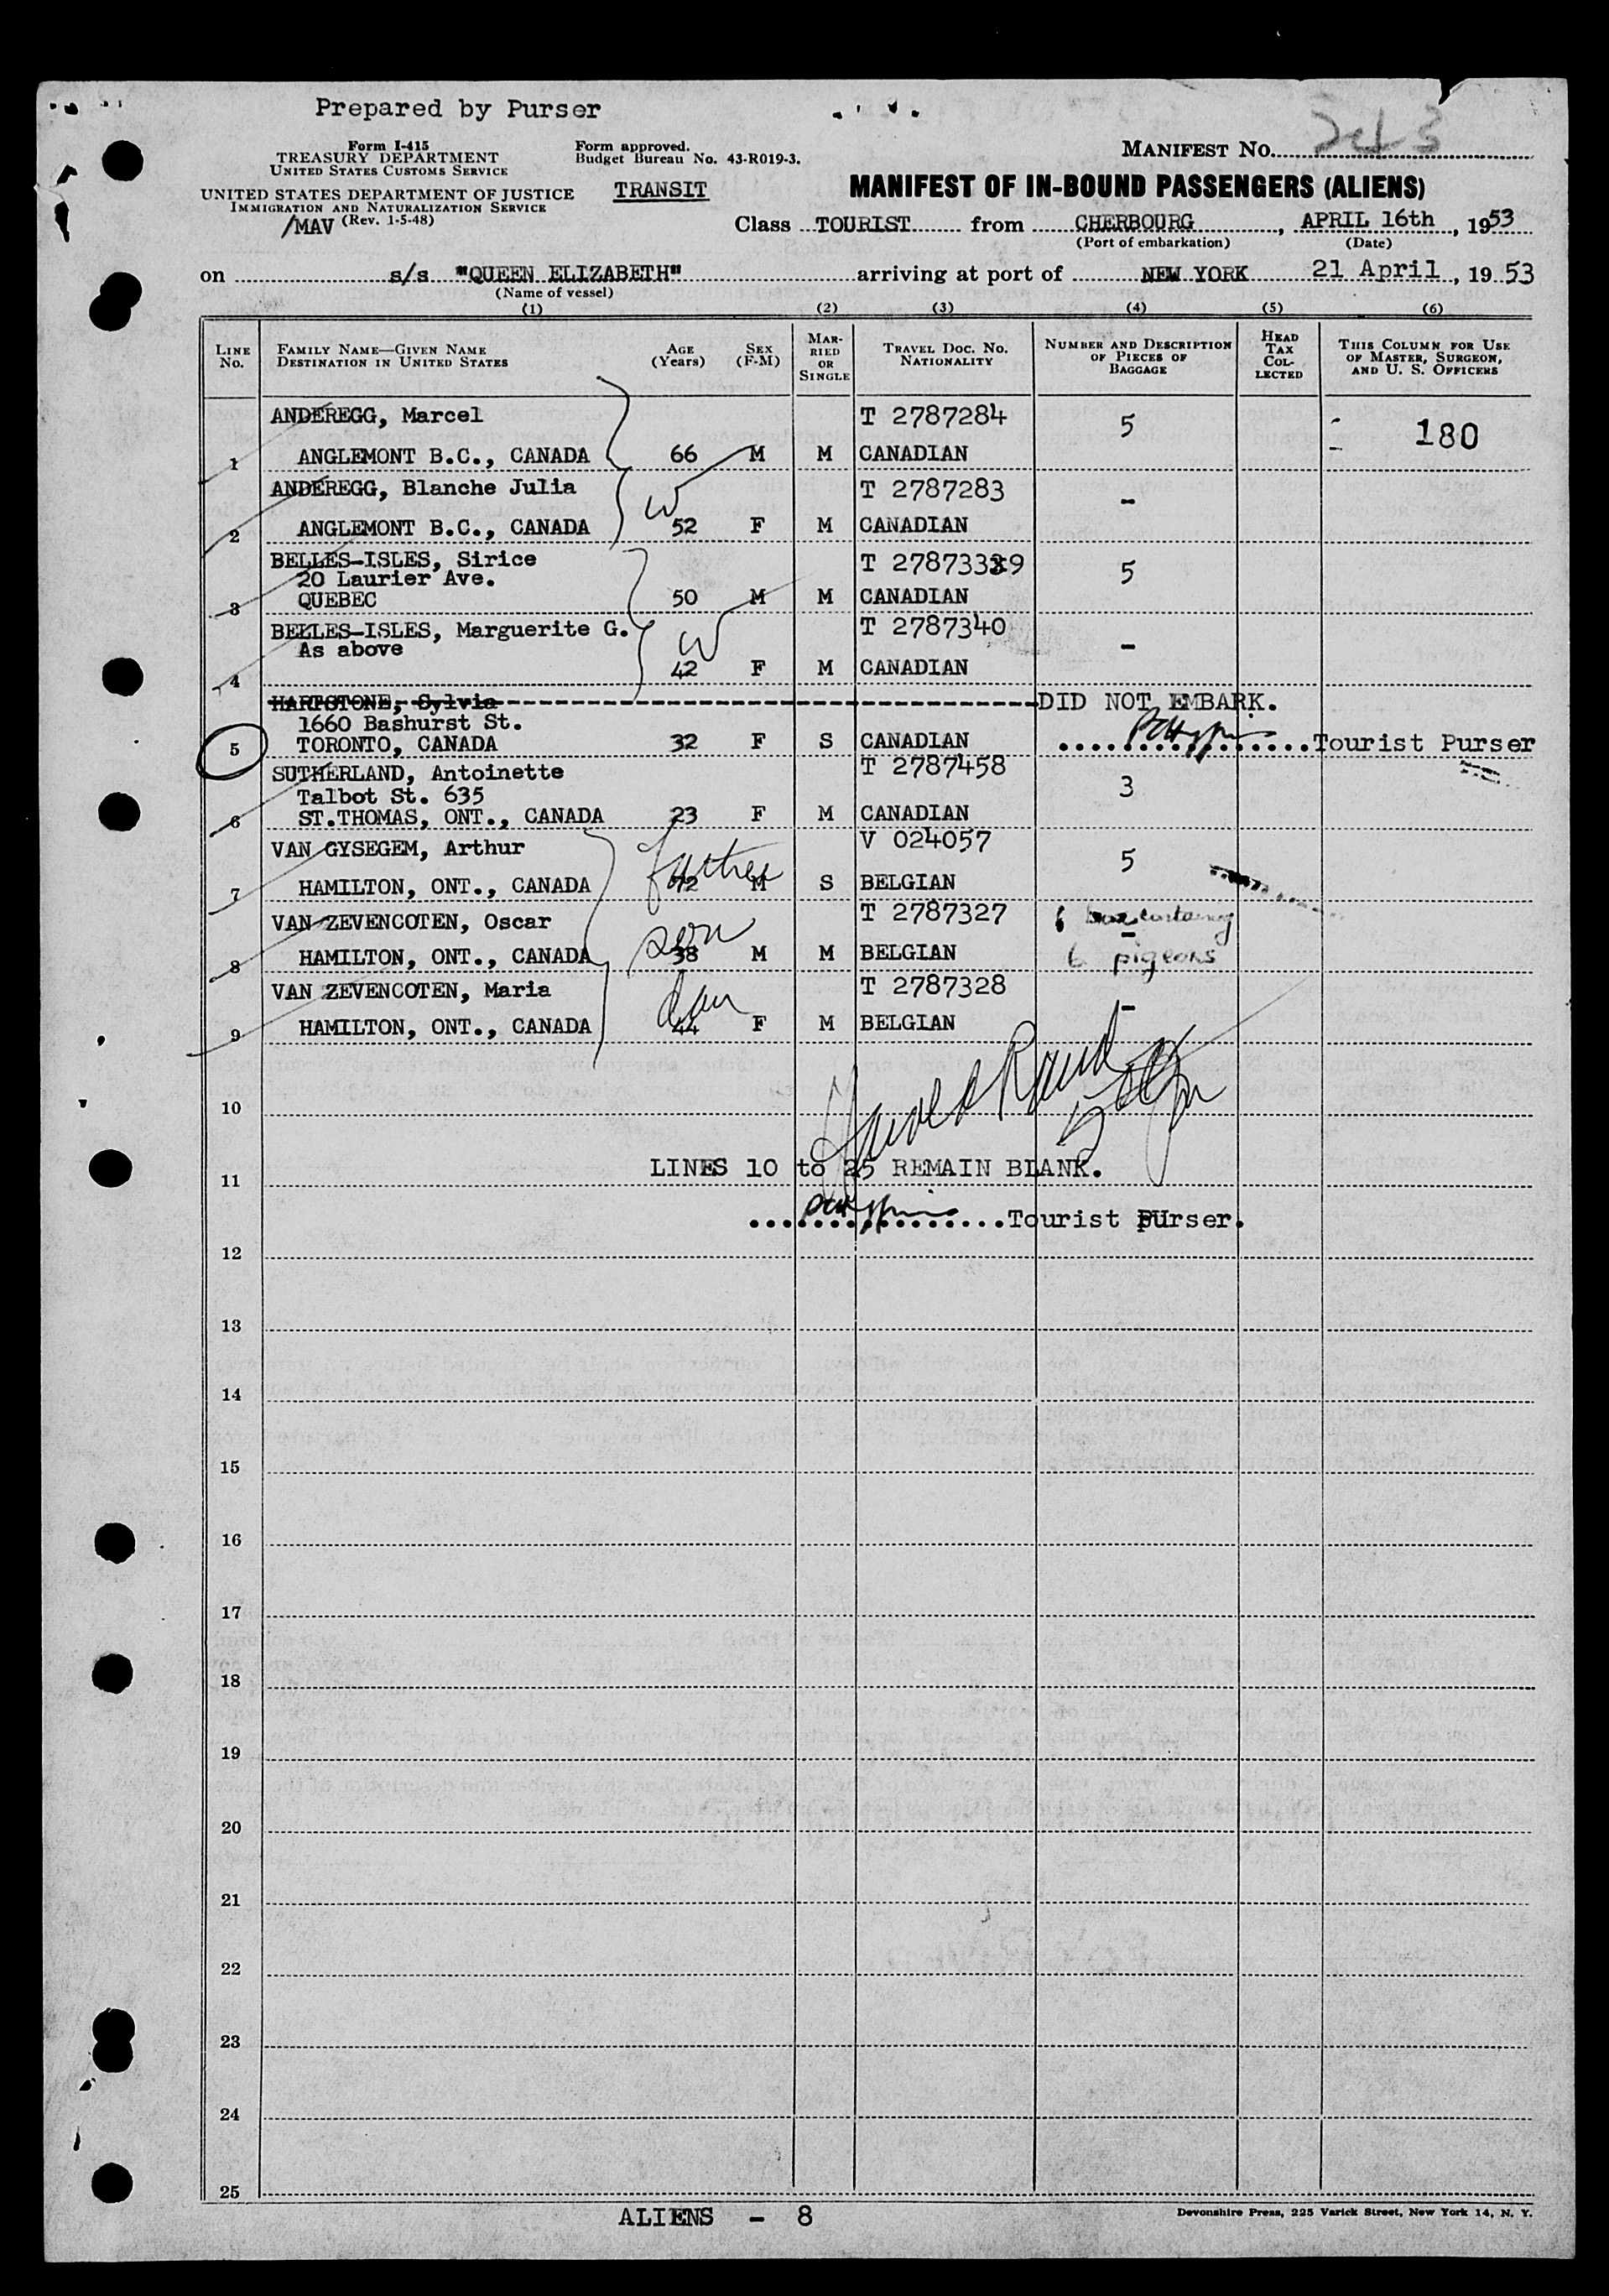 Prepared by Purser
Form I-415
TREASURY DEPARTMENT
UNITED STATES CUSTOMS SERVICE
Form approved.
Budget Bureau No. 43-R019-3.
MANIFEST No.
UNITED STATES DEPARTMENT OF JUSTICE
IMMIGRATION AND NATURALIZATION SERVICE
/MAV (Rev. 1-5-48)
TRANSIT
MANIFEST OF IN-BOUND PASSENGERS (ALIENS)
Class TOURIST from CHERBOURG, APRIL 16th, 1953
(Port of embarkation) (Date)
on s/s "QUEEN ELIZABETH" arriving at port of NEW YORK 21 April, 1953
(Name of vessel)
(1) (2) (3) (4) (5) (6)
LINE No.
FAMILY NAME—GIVEN NAME
DESTINATION IN UNITED STATES
AGE (Years)
SEX (F-M)
MARRIED OR SINGLE
TRAVEL DOC. No.
NATIONALITY
NUMBER AND DESCRIPTION OF PIECES OF BAGGAGE
HEAD TAX COLLECTED
THIS COLUMN FOR USE OF MASTER, SURGEON, AND U. S. OFFICERS
ANDEREGG, Marcel T 2787284 5 180
1 ANGLEMONT B.C., CANADA 66 M M CANADIAN
ANDEREGG, Blanche Julia W T 2787283 -
2 ANGLEMONT B.C., CANADA 52 F M CANADIAN
BELLES-ISLES, Sirice T 27873339 5
20 Laurier Ave.
3 QUEBEC 50 M M CANADIAN
BELLES-ISLES, Marguerite G. W T 2787340 -
As above
4 42 F M CANADIAN
HARTSTONE, Sylvia DID NOT EMBARK.
1660 Bashurst St.
5 TORONTO, CANADA 32 F S CANADIAN Tourist Purser
SUTHERLAND, Antoinette T 2787458 3
Talbot St. 635
6 ST.THOMAS, ONT., CANADA 23 F M CANADIAN
VAN GYSEGEM, Arthur father V 024057 5
7 HAMILTON, ONT., CANADA 72 M S BELGIAN
VAN ZEVENCOTEN, Oscar son T 2787327 box containing -
8 HAMILTON, ONT., CANADA 38 M M BELGIAN 6 pigeons
VAN ZEVENCOTEN, Maria T 2787328 -
9 HAMILTON, ONT., CANADA 44 F M BELGIAN
10
LINES 10 to 25 REMAIN BLANK.
11
Tourist Purser.
12
13
14
15
16
17
18
19
20
21
22
23
24
25
ALIENS - 8
Devonshire Press, 225 Varick Street, New York 14, N. Y.